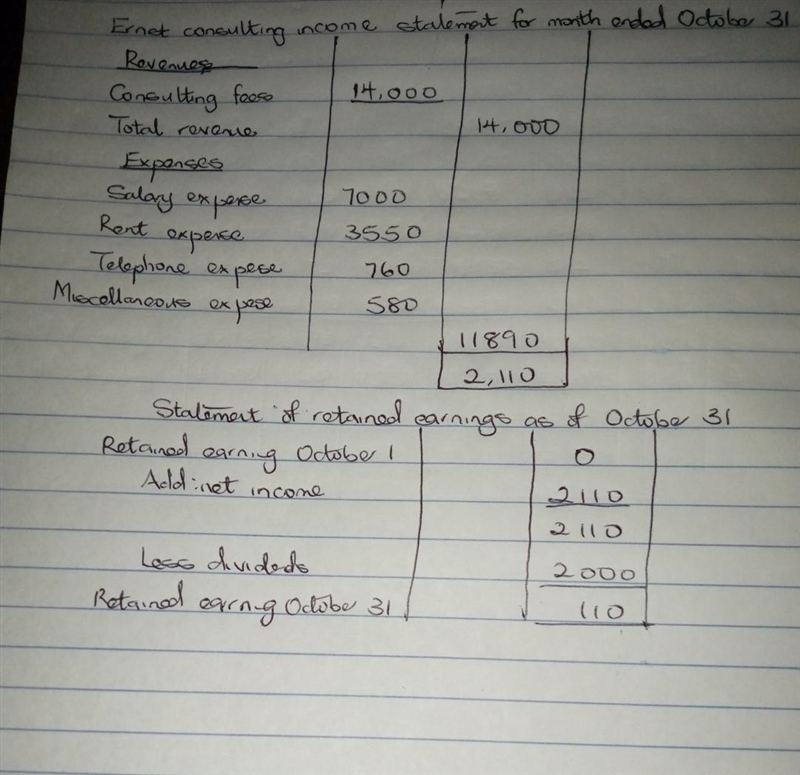 Ernet consulting income statement for month ended October 31
Revenues
Consulting fees 14,000
Total revenue 14,000
Expenses
Salary expense 7000
Rent expense 3550
Telephone expese 760
Miscellaneous expese 580
11890
2,110
Statement of retained earnings as of October 31
Retained earning October 1 0
Add: net income 2110
2110
Less divideds 2000
Retained earning October 31 110